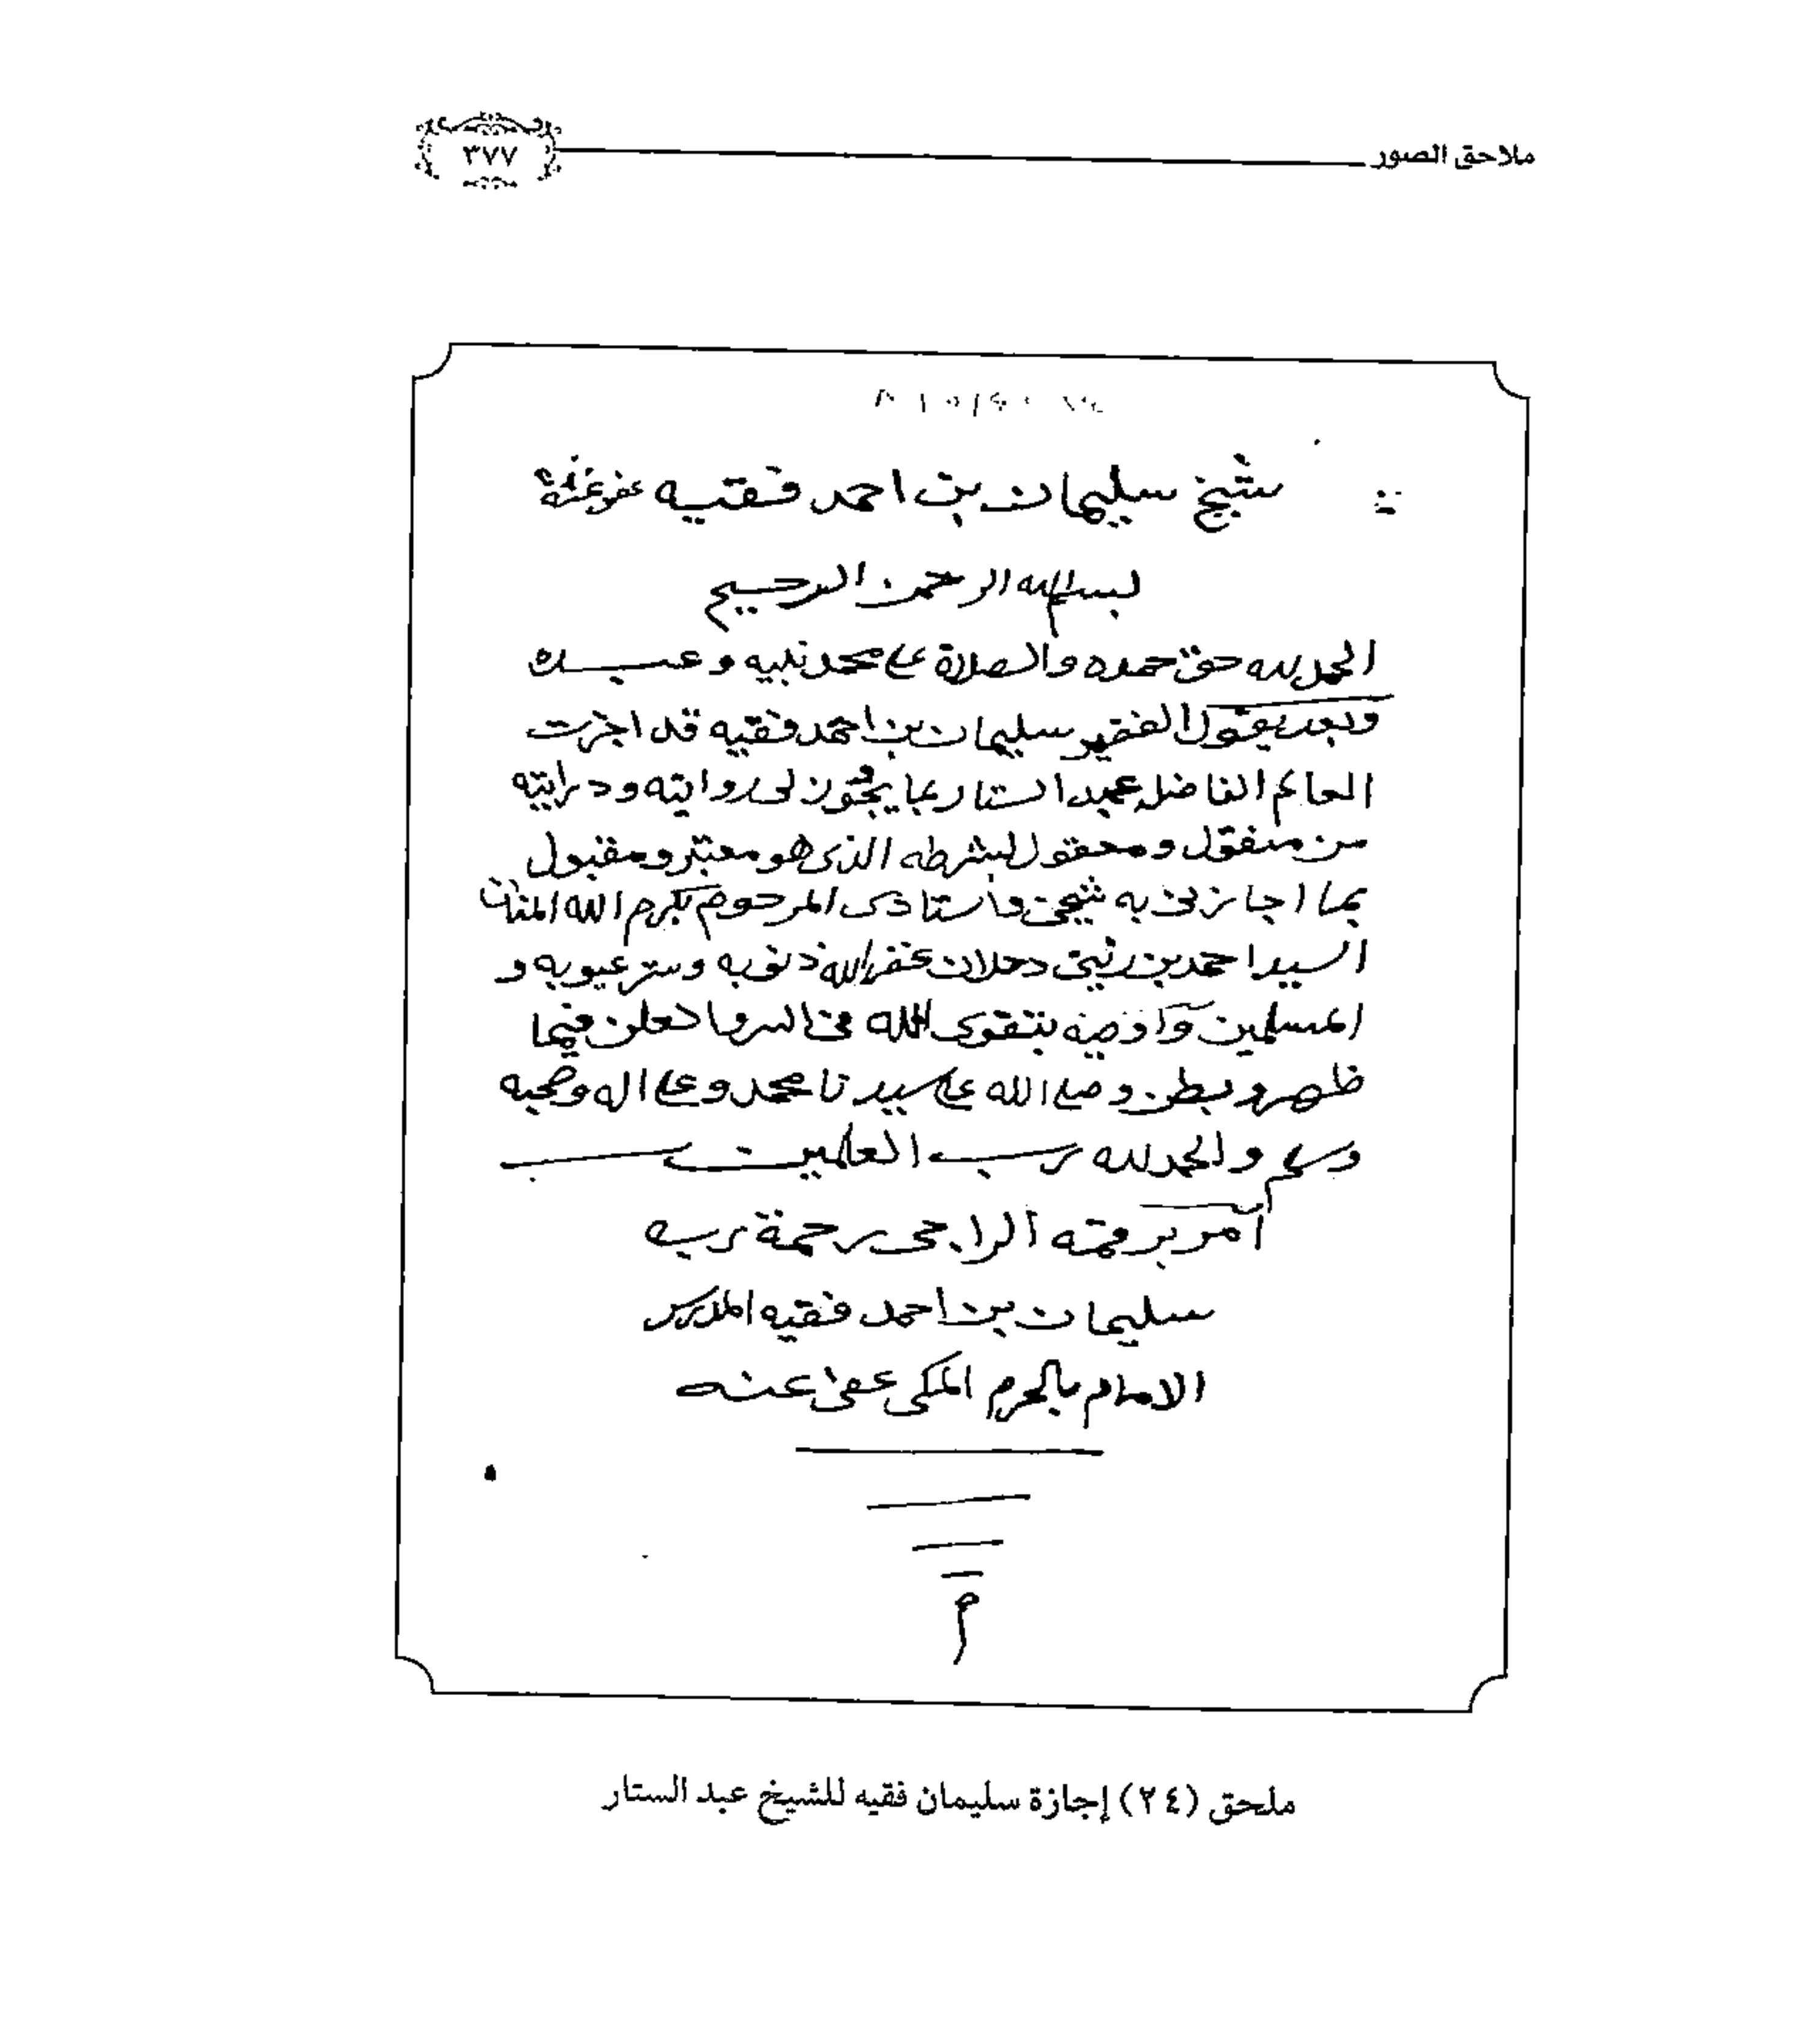 ملاحق الصور
٣٧٧
شيخ سليمان بن احمد فقيه عفو عنه
بسم الله الرحمن الرحيم
الحمد لله حق حمده والصلاة على محمد نبيه وعبده
وبعد يقول الفقير سليمان بن احمد فقيه قد اجزت
العالم الفاضل عبد الستار بما يجوز لى روايته ودرايته
من منقول ومعقول بشرطه الذى هو معتبر ومقبول
بما اجازنى به شيخى واستادى المرحوم بكرم الله المنان
السيد احمد بن زينى دحلان غفر الله ذنوبه وستر عيوبه و
المسلمين واوصيه بتقوى الله فى السر والعلن فيما
ظهر وبطن وصلى الله على سيدنا محمد وعلى اله وصحبه
وسلم والحمد لله رب العالمين
امر برقمه الراجى رحمة ربه
سليمان بن احمد فقيه المدرس
الامام بالحرم المكى عفى عنه
م
ملحق (٢٤) إجازة سليمان فقيه للشيخ عبد الستار